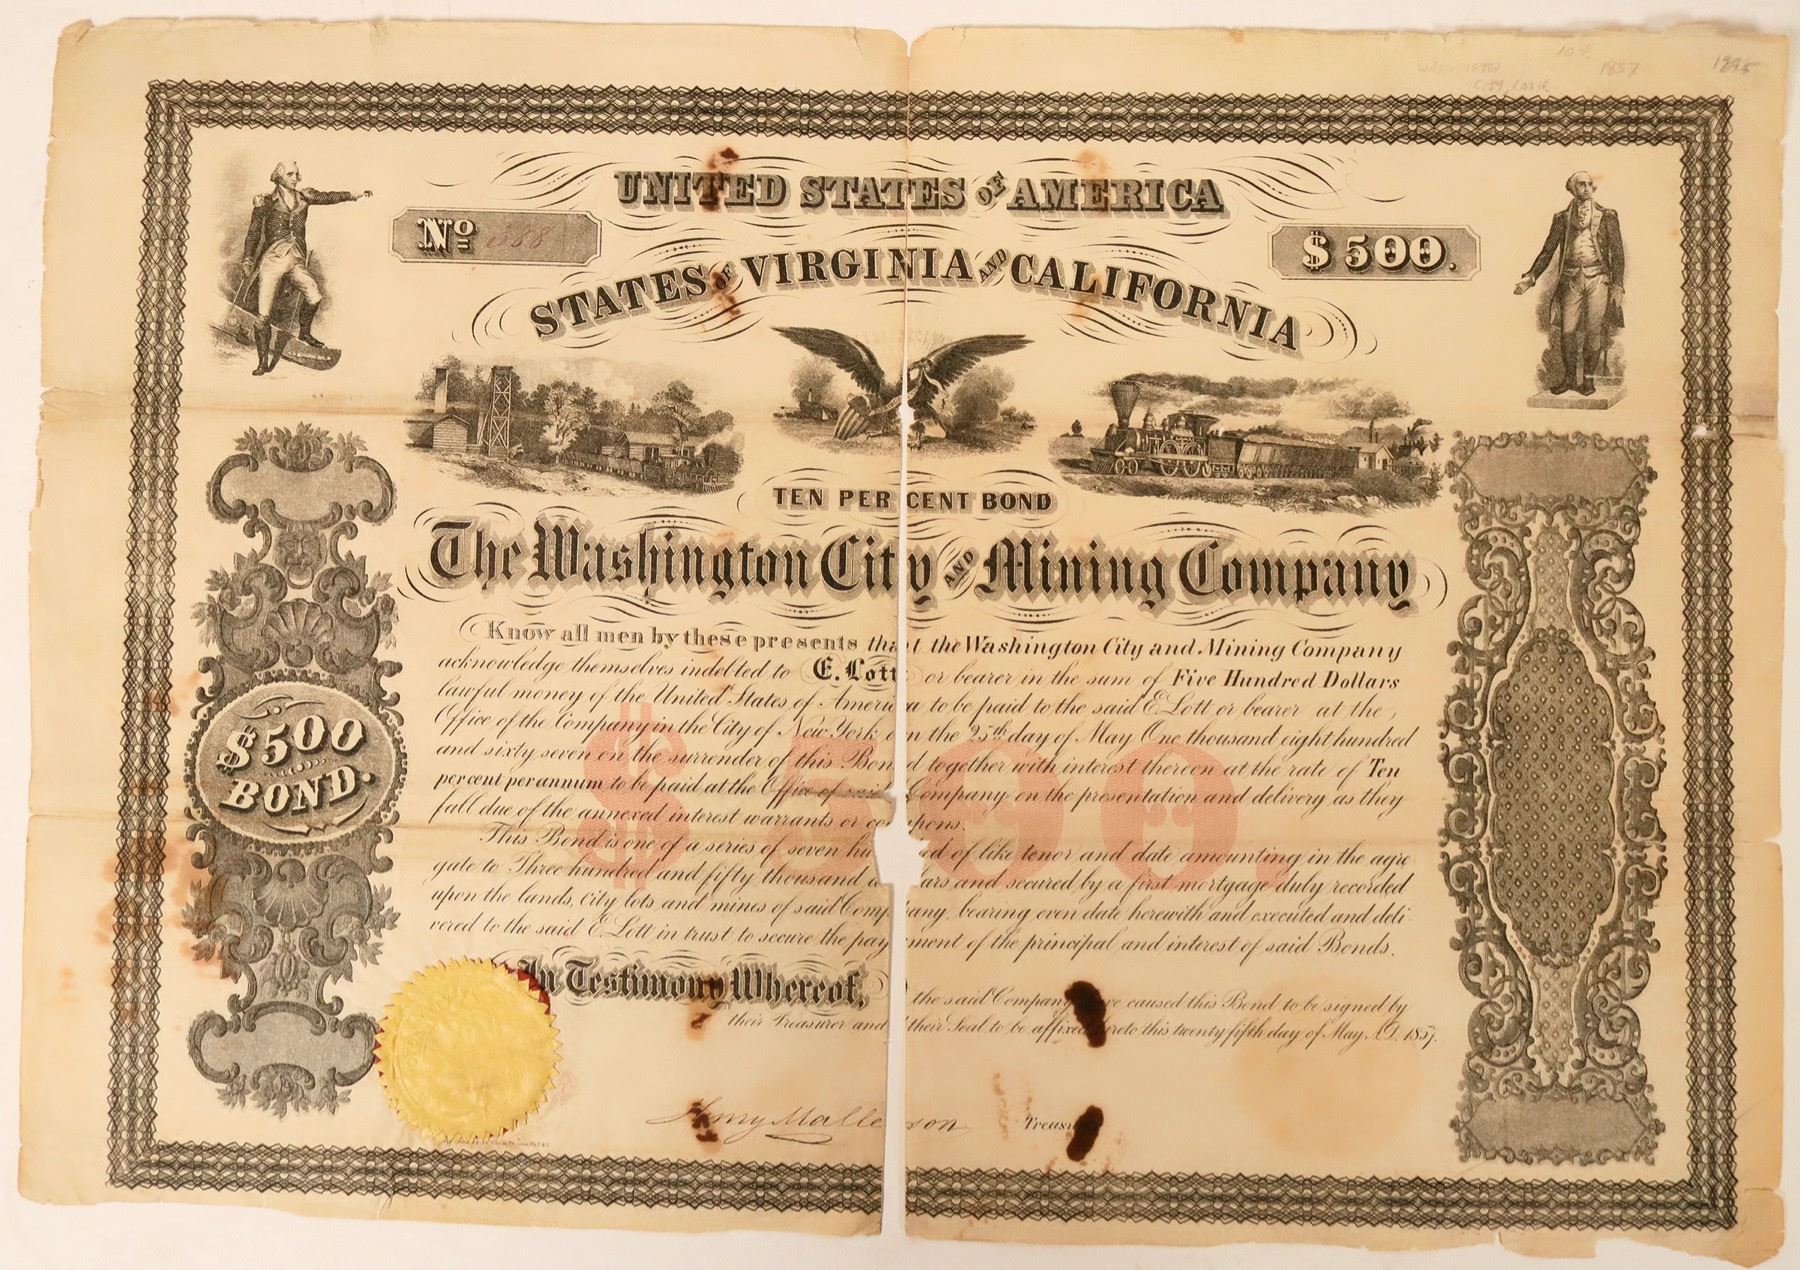 WASHINGTON
1857
UNITED STATES OF AMERICA
No 388
$500.
STATES OF VIRGINIA AND CALIFORNIA
TEN PER CENT BOND
The Washington City AND Mining Company
Know all men by these presents that the Washington City and Mining Company
acknowledge themselves indebted to E. Lott or bearer in the sum of Five Hundred Dollars
lawful money of the United States of America to be paid to the said E. Lott or bearer at the
Office of the Company in the City of New York on the 25th day of May One thousand eight hundred
and sixty seven on the surrender of this Bond together with interest thereon at the rate of Ten
per cent per annum to be paid at the Office of said Company on the presentation and delivery as they
fall due of the annexed interest warrants or coupons.
This Bond is one of a series of seven hu ed of like tenor and date amounting in the agre
gate to Three hundred and fifty thousand d lars and secured by a first mortgage duly recorded
upon the lands, city lots and mines of said Company, bearing even date herewith and executed and deli-
vered to the said E. Lott in trust to secure the payment of the principal and interest of said Bonds.
In Testimony Whereof,
the said Company have caused this Bond to be signed by
their Treasurer and their Seal to be affixed hereto this twenty fifth day of May A.D. 1857.
$500
BOND.
$500.
Treasu